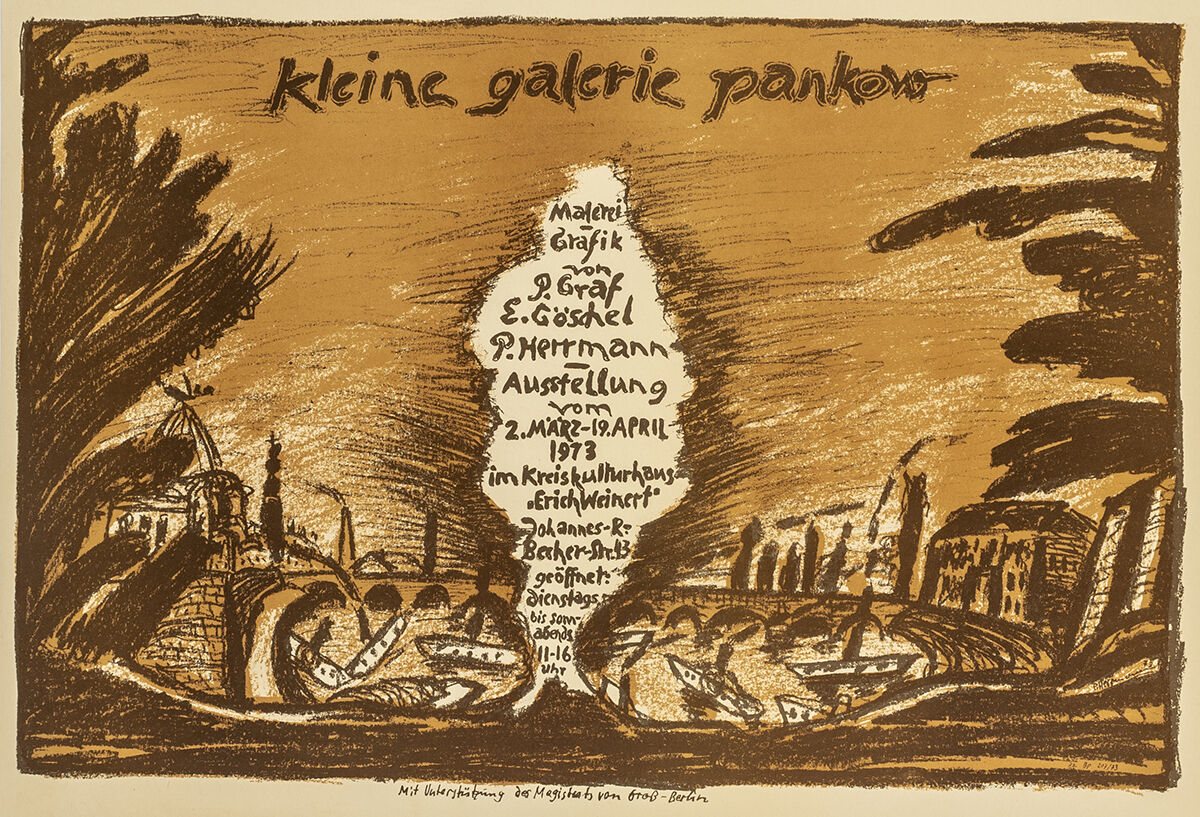 kleine galerie pankow
Malerei
–
Grafik
von
P. Graf
E. Göschel
P. Herrmann
–
Ausstellung
vom
2. MÄRZ-19. APRIL
1973
im Kreiskulturhaus
"Erich Weinert"
Johannes-R.-
Becher-Str. 13
geöffnet:
dienstags
bis sonn-
abends
11-16
Uhr
Mit Unterstützung des Magistrats von Groß-Berlin